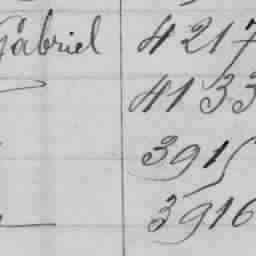 Gabriel 4217
4133
3915
3916